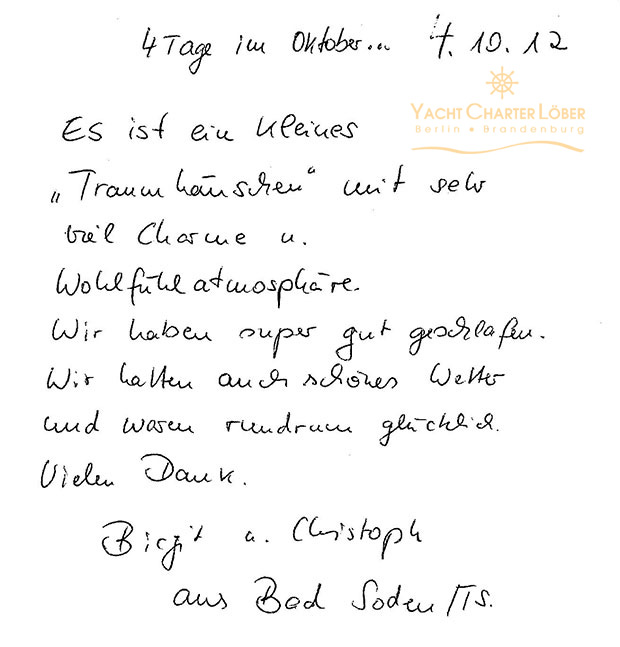 4 Tage im Oktober... 4.10.12
YACHT CHARTER LÖBER
Berlin • Brandenburg
Es ist ein kleines
„Traumhäuschen“ mit sehr
viel Charme u.
Wohlfühlatmosphäre.
Wir haben super gut geschlafen.
Wir hatten auch schönes Wetter
und waren rundrum glücklich.
Vielen Dank.
Birgit u. Christoph
aus Bad Soden/TS.